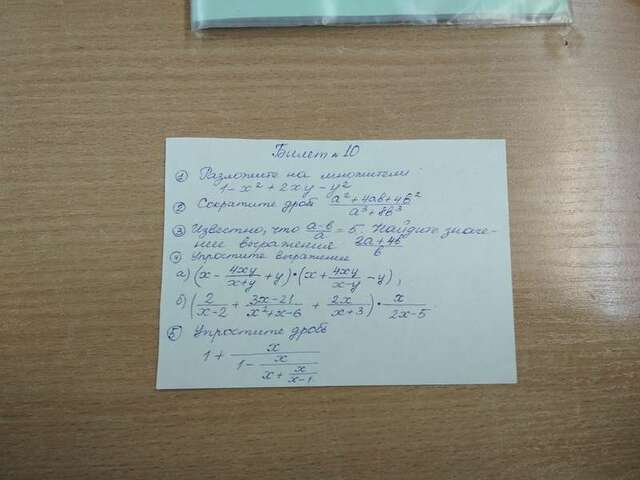 Билет № 10
① Разложите на множители:
1 - x² + 2xy - y²
② Сократите дробь (a² + 4ab + 4b²)/(a³ + 8b³)
③ Известно, что (a-b)/a = 5. Найдите значе-
ние выражения (2a+4b)/b
④ Упростите выражение
а) (x - 4xy/(x+y) + y) · (x + 4xy/(x-y) - y),
б) (2/(x-2) + (3x-21)/(x²+x-6) + 2x/(x+3)) · x/(2x-5).
⑤ Упростите дробь
1 + x/(1 - x/(x + x/(x-1)))